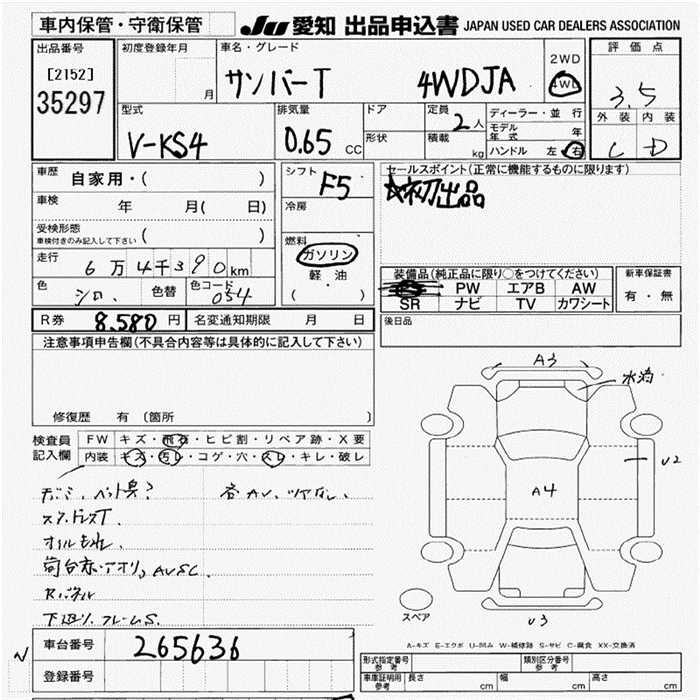 車内保管・守衛保管
JU 愛知 出品申込書 JAPAN USED CAR DEALERS ASSOCIATION
出品番号
[2152]
35297
初度登録年月
月
車名・グレード
サンバーT 4WDJA
2WD
4WD
評価点
3.5
外装 内装
C D
型式
V-KS4
排気量
0.65 CC
ドア
形状
定員
2人
積載
kg
ディーラー・並行
モデル年式 年
ハンドル 左 右
車歴
自家用・( )
車検
年 月( 日)
受検形態
車検付きのみ記入して下さい ( )
走行
6万4千390km
色
シロ
色替
色コード
054
シフト
F5
冷房
燃料
ガソリン
軽・油
( )
セールスポイント(正常に機能するものに限ります)
☆初出品
装備品(純正品に限り○をつけてください)
PW エアB AW
SR ナビ TV カワシート
新車保証書
有・無
後日品
R券 8,580円 名変通知期限 月 日
注意事項申告欄(不具合内容等は具体的に記入して下さい)
修復歴 有 〔箇所 〕
検査員記入欄
FW キズ・飛石・ヒビ割・リペア跡・X要
内装 キズ・汚レ・コゲ・穴・スレ・キレ・破レ
スタッドレスT.
オイルもれ.
荷台赤・アオリ, AUSC.
Rパネル
下廻り. フレームS.
A3
水滴
U2
A4
U3
スペア
A-キズ E-エクボ U-凹み W-補修跡 S-サビ C-腐食 XX-交換済
車台番号 265636
登録番号
形式指定番号 参考
類別区分番号 参考
車庫証明用 参考 長さ cm 幅 cm 高さ cm